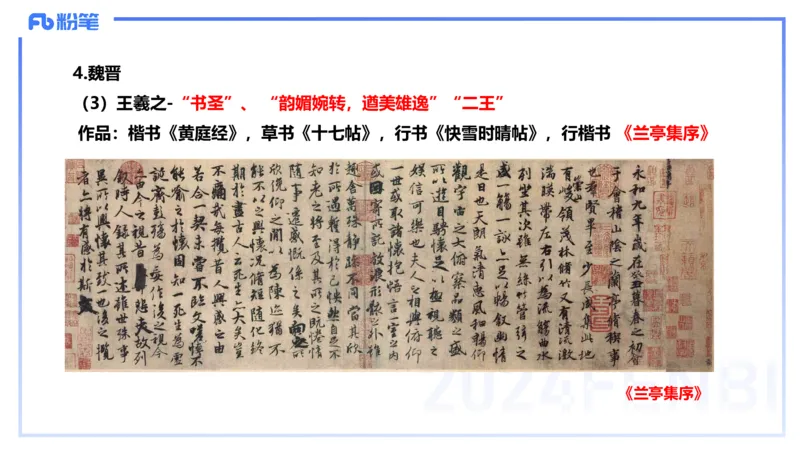 粉笔
4.魏晋
（3）王羲之-“书圣”、 “韵媚婉转，遒美雄逸” “二王”
作品：楷书《黄庭经》，草书《十七帖》，行书《快雪时晴帖》，行楷书 《兰亭集序》
永和九年歲在癸丑暮春之初會
于會稽山陰之蘭亭脩稧事
也羣賢畢至少長咸集此地
有崇山峻領茂林脩竹又有清流激
湍暎帶左右引以為流觴曲水
列坐其次雖無絲竹管弦之
盛一觴一詠亦足以暢敘幽情
是日也天朗氣清惠風和暢仰
觀宇宙之大俯察品類之盛
所以遊目騁懷足以極視聽之
娛信可樂也夫人之相與俯仰
一世或取諸懷抱悟言一室之內
或因寄所託放浪形骸之外雖
趣舍萬殊靜躁不同當其欣
於所遇蹔得於己怏然自足不
知老之將至及其所之既惓情
隨事遷感慨係之矣向之所
欣俛仰之閒以為陳迹猶不
能不以之興懷況脩短隨化終
期於盡古人云死生亦大矣豈
不痛哉每攬昔人興感之由
若合一契未嘗不臨文嗟悼不
能喻之於懷固知一死生為虛
誕齊彭殤為妄作後之視今
亦由今之視昔悲夫故列
敘時人錄其所述雖世殊事
異所以興懷其致一也後之攬
者亦將有感於斯文
《兰亭集序》